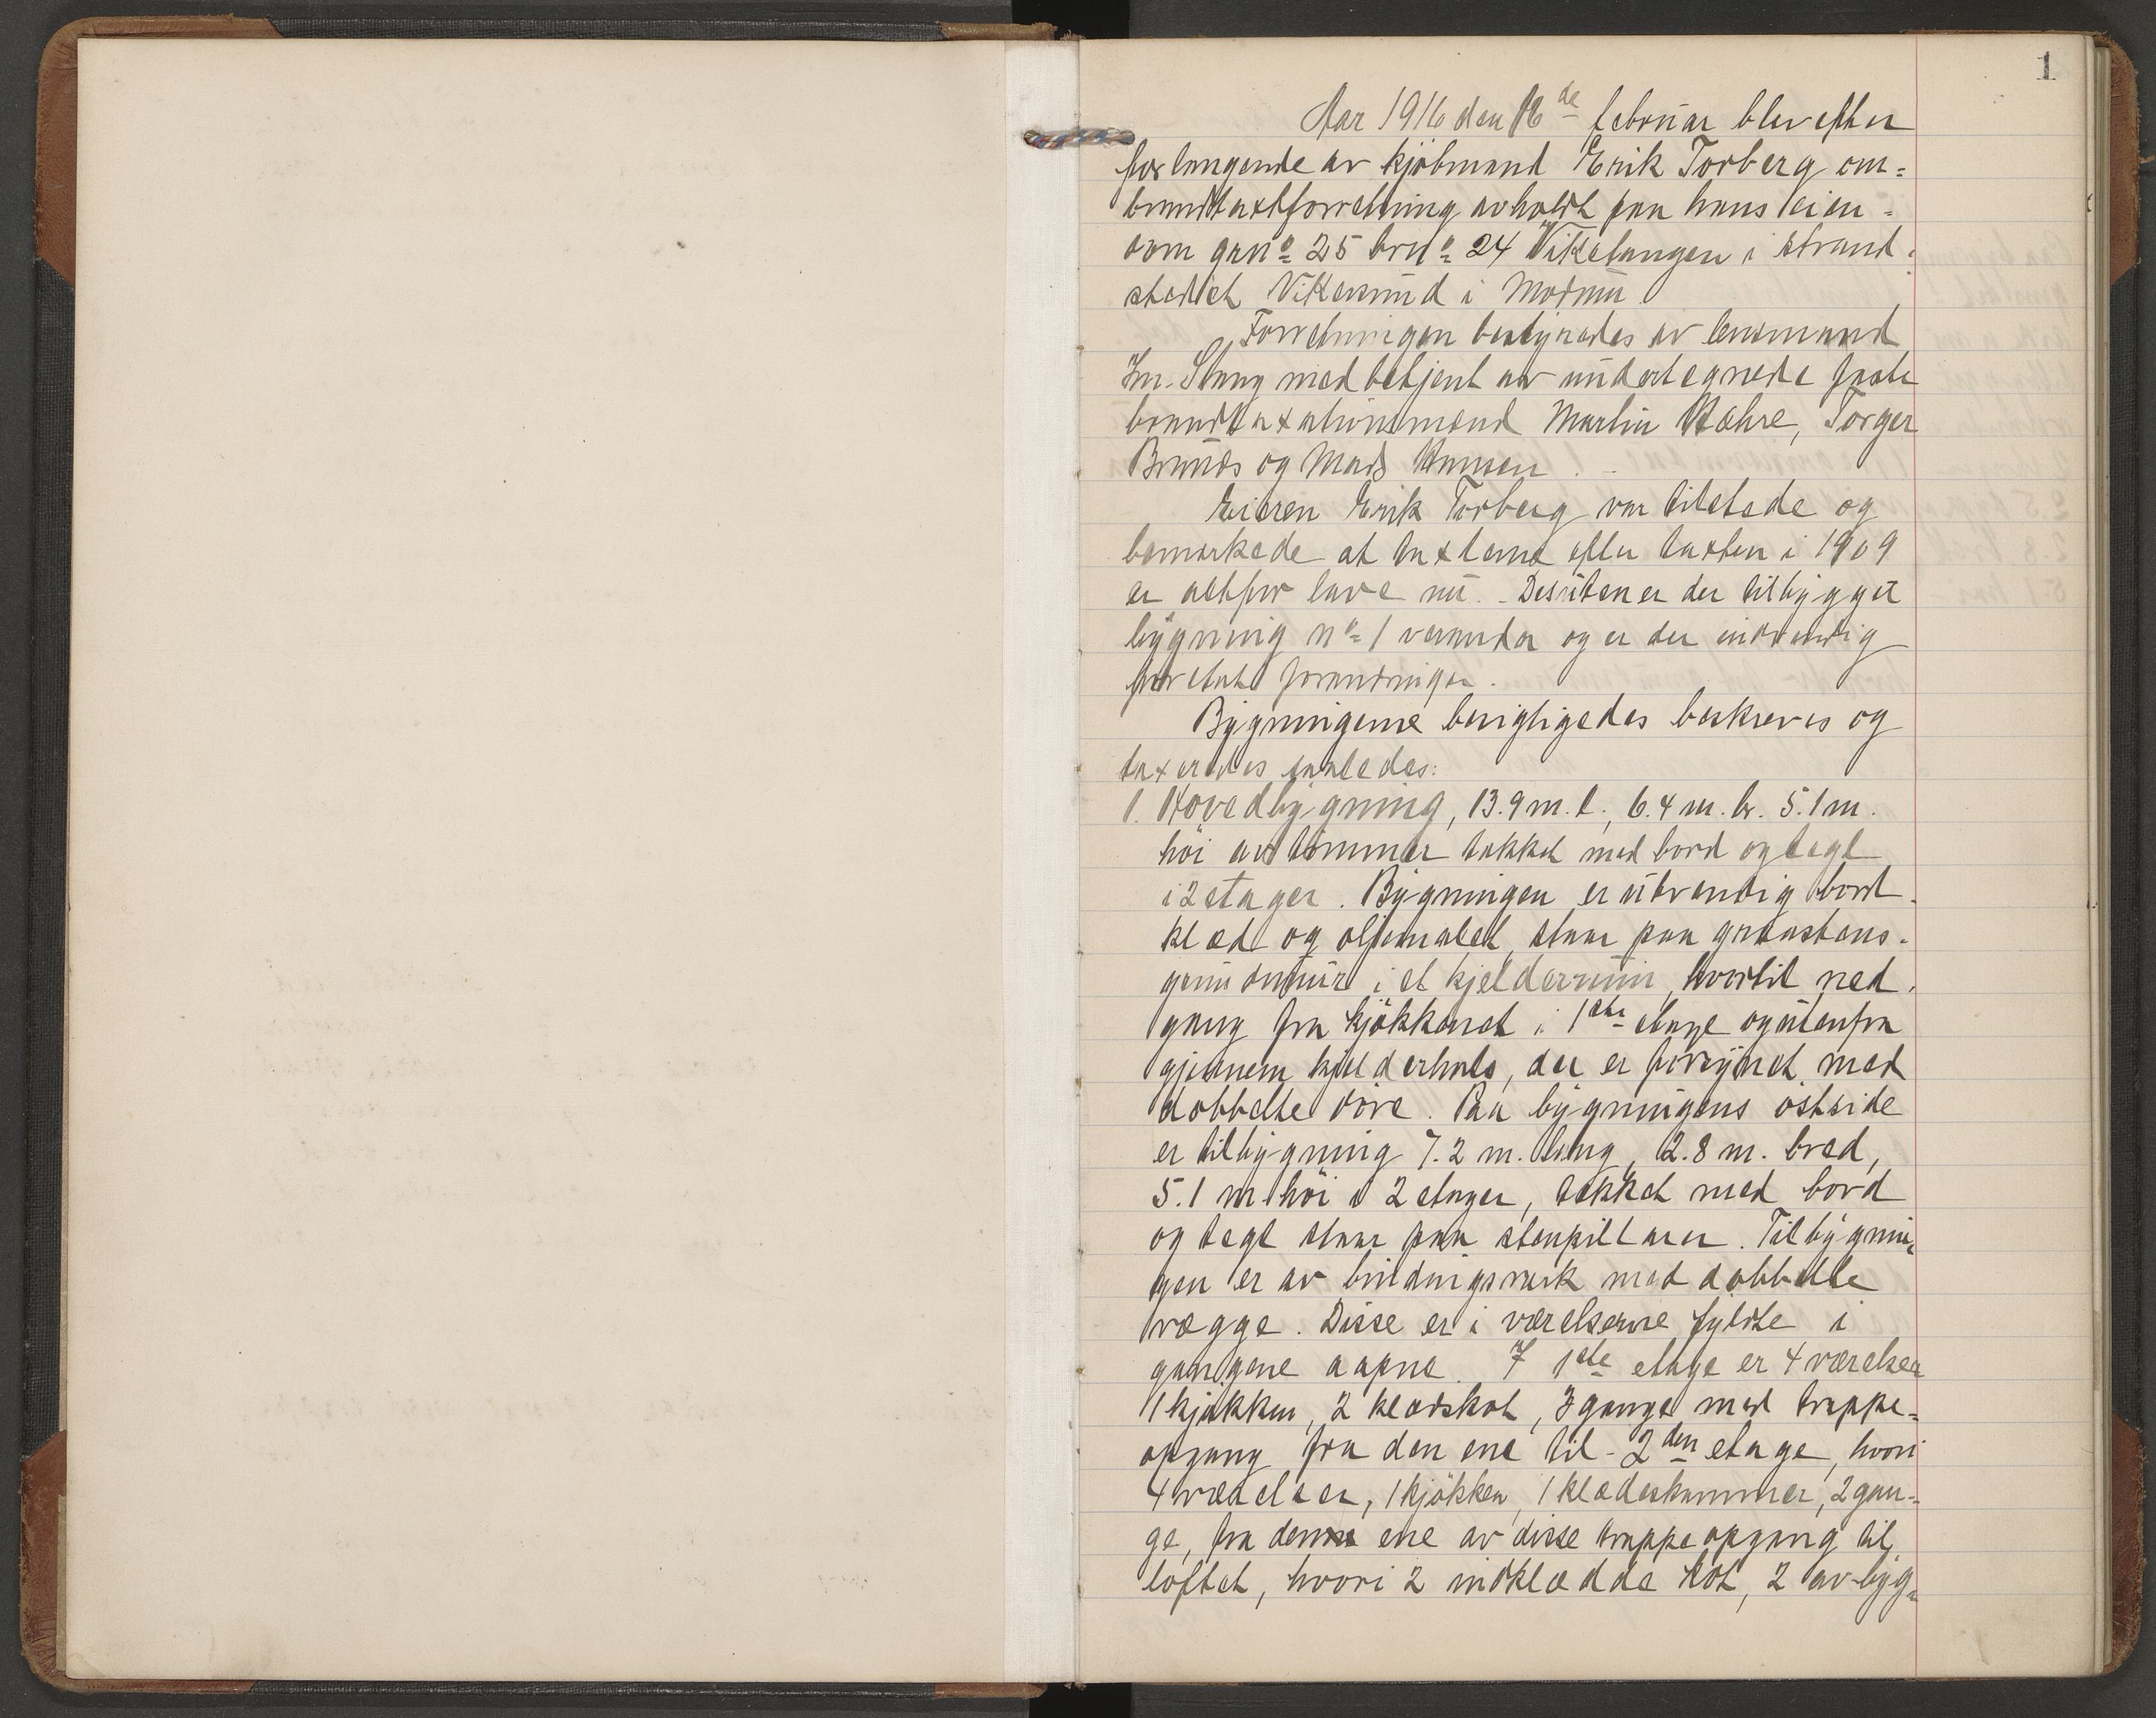 1
Aar 1916 den 16de februar blev efter
forlangende av kjöbmand Erik Torberg om=
brandtaxtforretning avholdt paa hans eien=
dom grno 25 brno 24 Viketangen i strand=
stedet Vikersund i Modum
Forretningen bestyredes av lensmand
Stang med betjent av undertegnede faste
brandtaxationsmænd Martin Stæhre, Torger
Brunæs og Mads Hansen.
Eieren Erik Torberg var tilstede og
bemerkede at taxterne efter taxten i 1909
er altfor lave nu. - Desuten er der tilbygget
bygning no 1 veranda og er der indvendig
foretat forandringer.
Bygningerne besigtigedes beskreves og
taxeredes saaledes:
1. Hovedbygning, 13.9 m. l., 6.4 m. br. 5.1 m.
höi av tömmer tækket med bord og tegl
i 2 etager. Bygningen er utvendig bord=
klæd og oljemalet, staar paa graastens=
grundmur i et kjelderrum, hvortil ned=
gang fra kjökkenet i 1ste etage og utenfra
gjennem kjelderhals, der er forsynet med
dobbelte döre. Paa bygningens östside
er tilbygning 7.2 m. lang, 2.8 m. bred,
5.1 m höi i 2 etager, tækket med bord
og tegl staar paa stenpillarer. Tilbygnin=
gen er av bindingsverk med dobbelte
vægge. Disse er i værelserne fyldte i
gangene aapne. I 1ste etage er 4 værelser
1 kjökken, 2 klædskot, 3 gange med trappe=
opgang fra den ene til 2den etage, hvori
4 værelser, 1 kjökken, 1 klædeskammer, 2 gan=
ge, fra den ene av disse trappeopgang til
loftet, hvori 2 indklædde kot, 2 av byg=